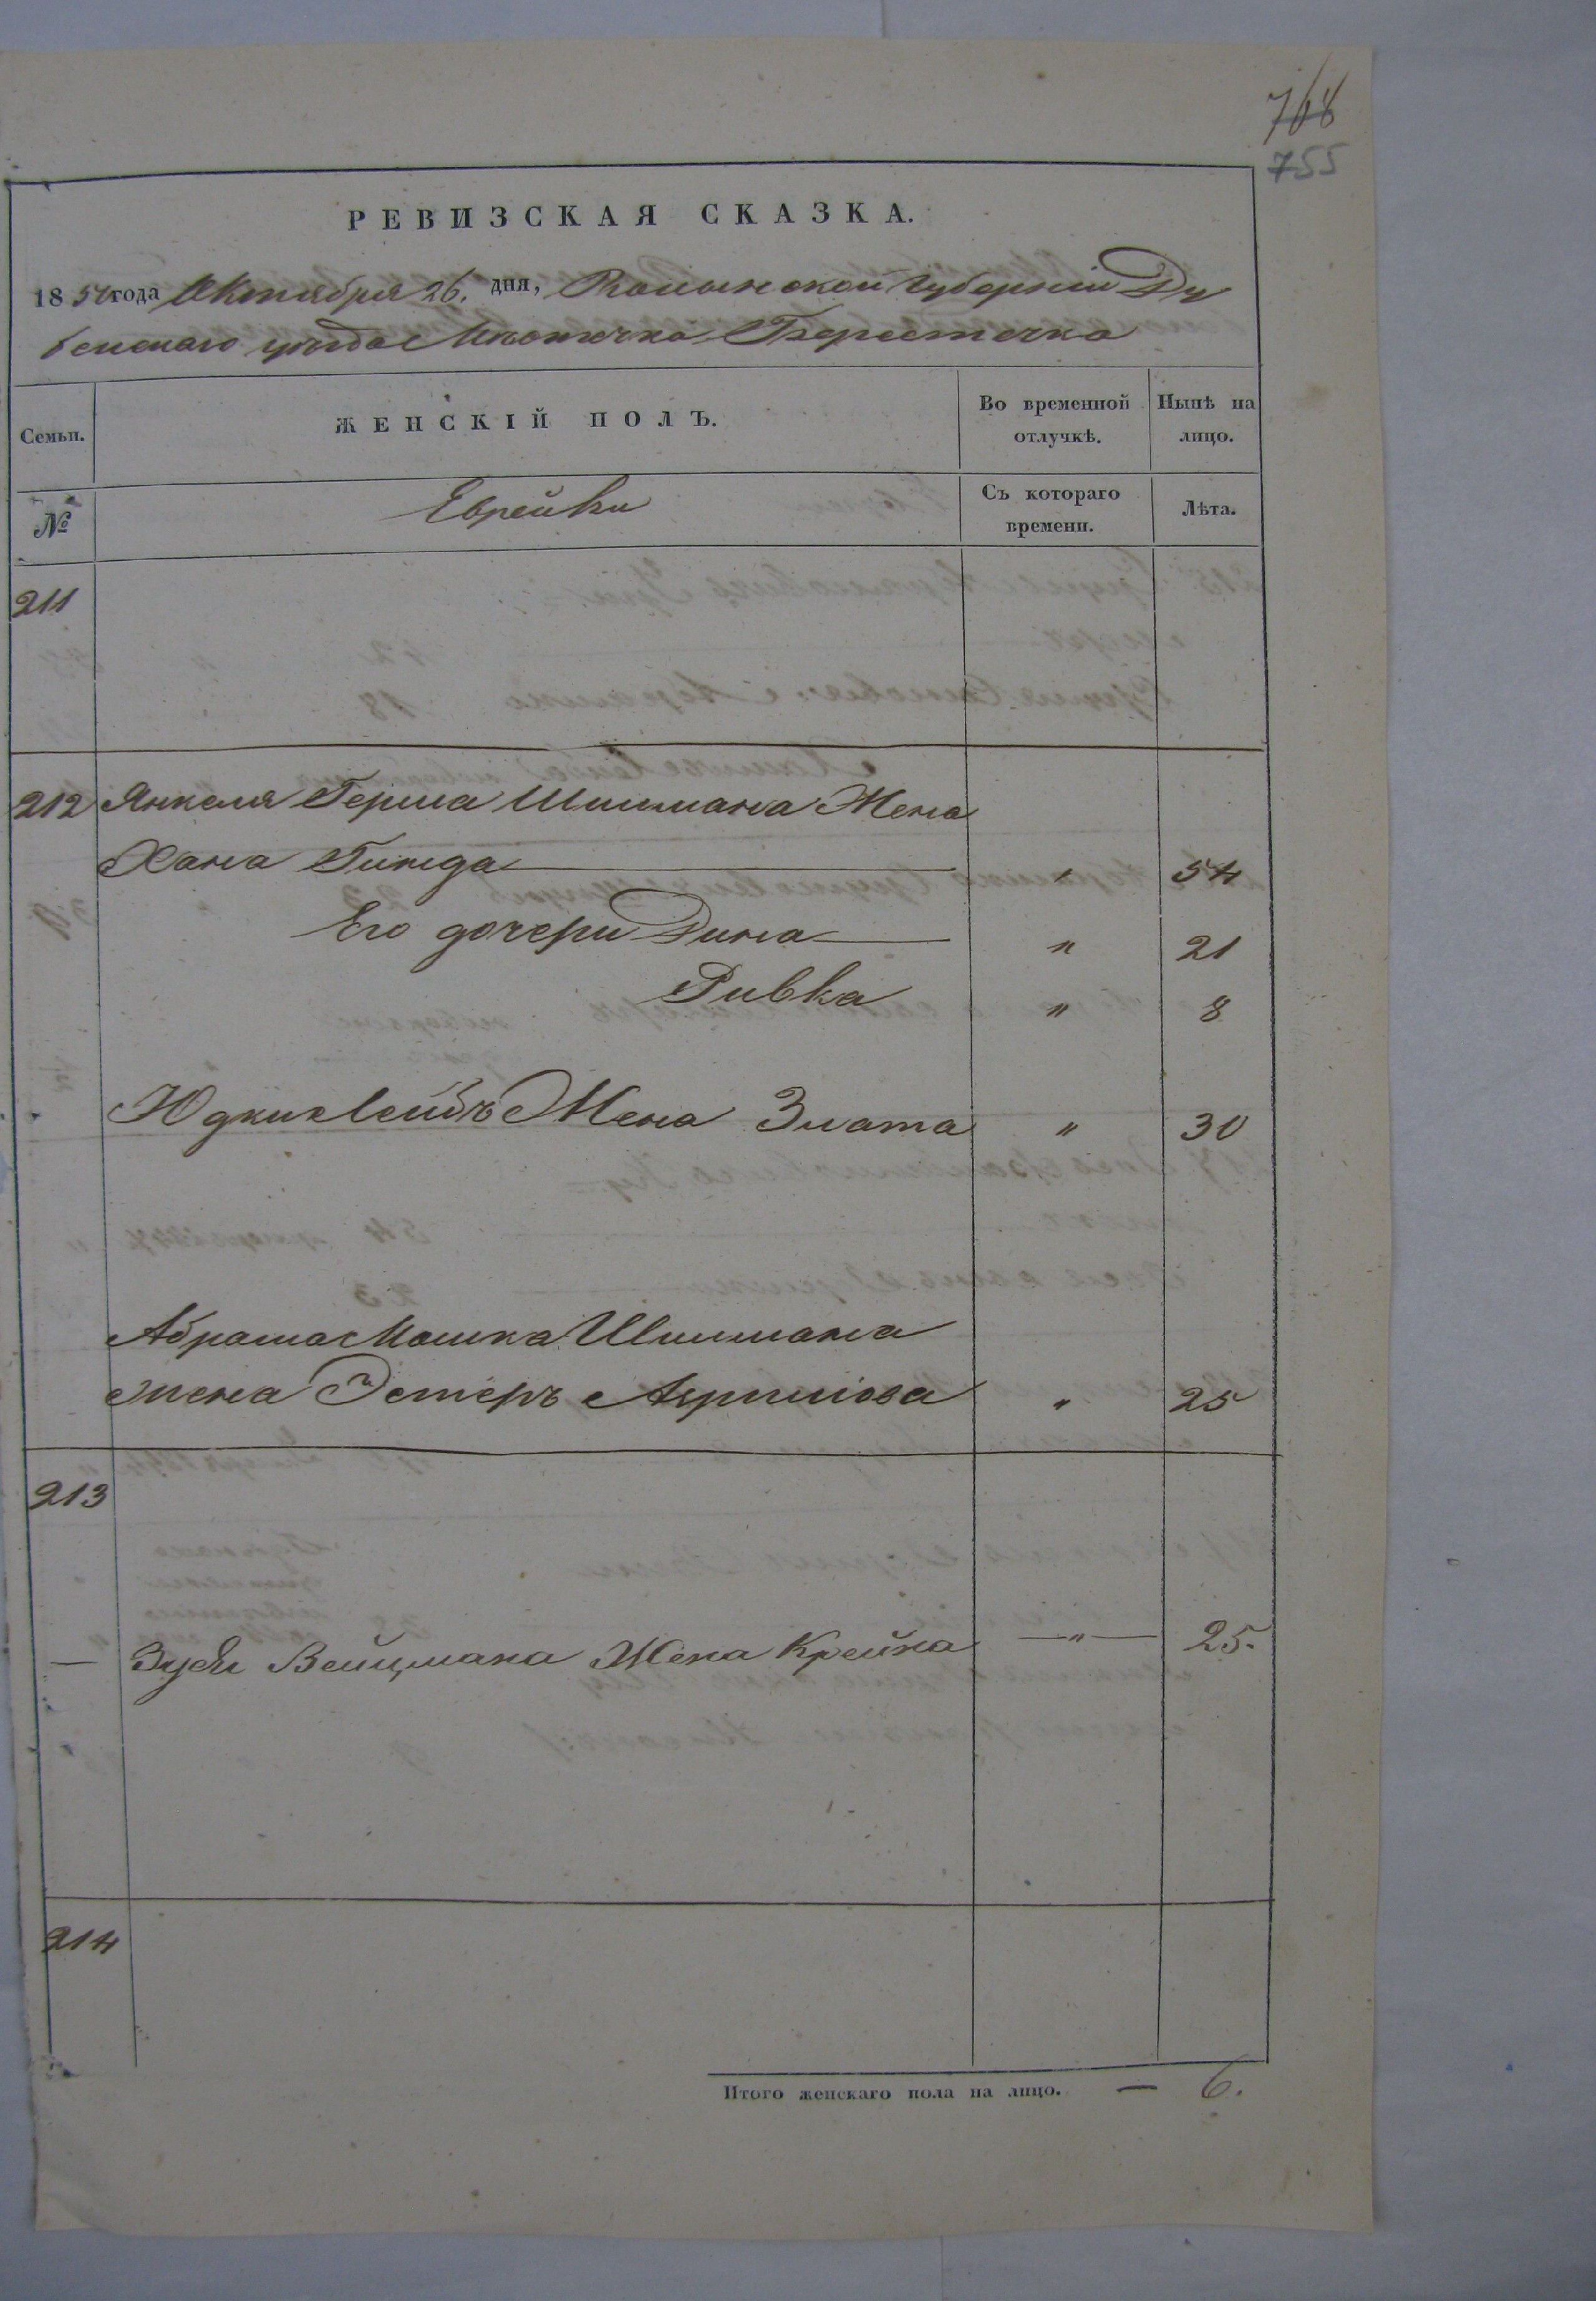 768
755
РЕВИЗСКАЯ СКАЗКА.
1850 года Октября 26. дня, Волынской Губерніи Ду
бенскаго уѣзда Мѣстечка Берестечка
Семьи.
ЖЕНСКІЙ ПОЛЪ.
Во временной отлучкѣ.
Нынѣ на лицо.
№
Еврейки
Съ котораго времени.
Лѣта.
211
212 Янкеля Герша Шишмана Жена
Хана Гинда " 54
Его дочери Дина " 21
Ривка " 8
Юдки Лейбъ Жена Злата " 30
Абрама Мошка Шишмана
жена Эстеръ " 25
213
— Зуси Вейцмана Жена Крейна —"— 25.
214
Итого женскаго пола на лицо. — 6.